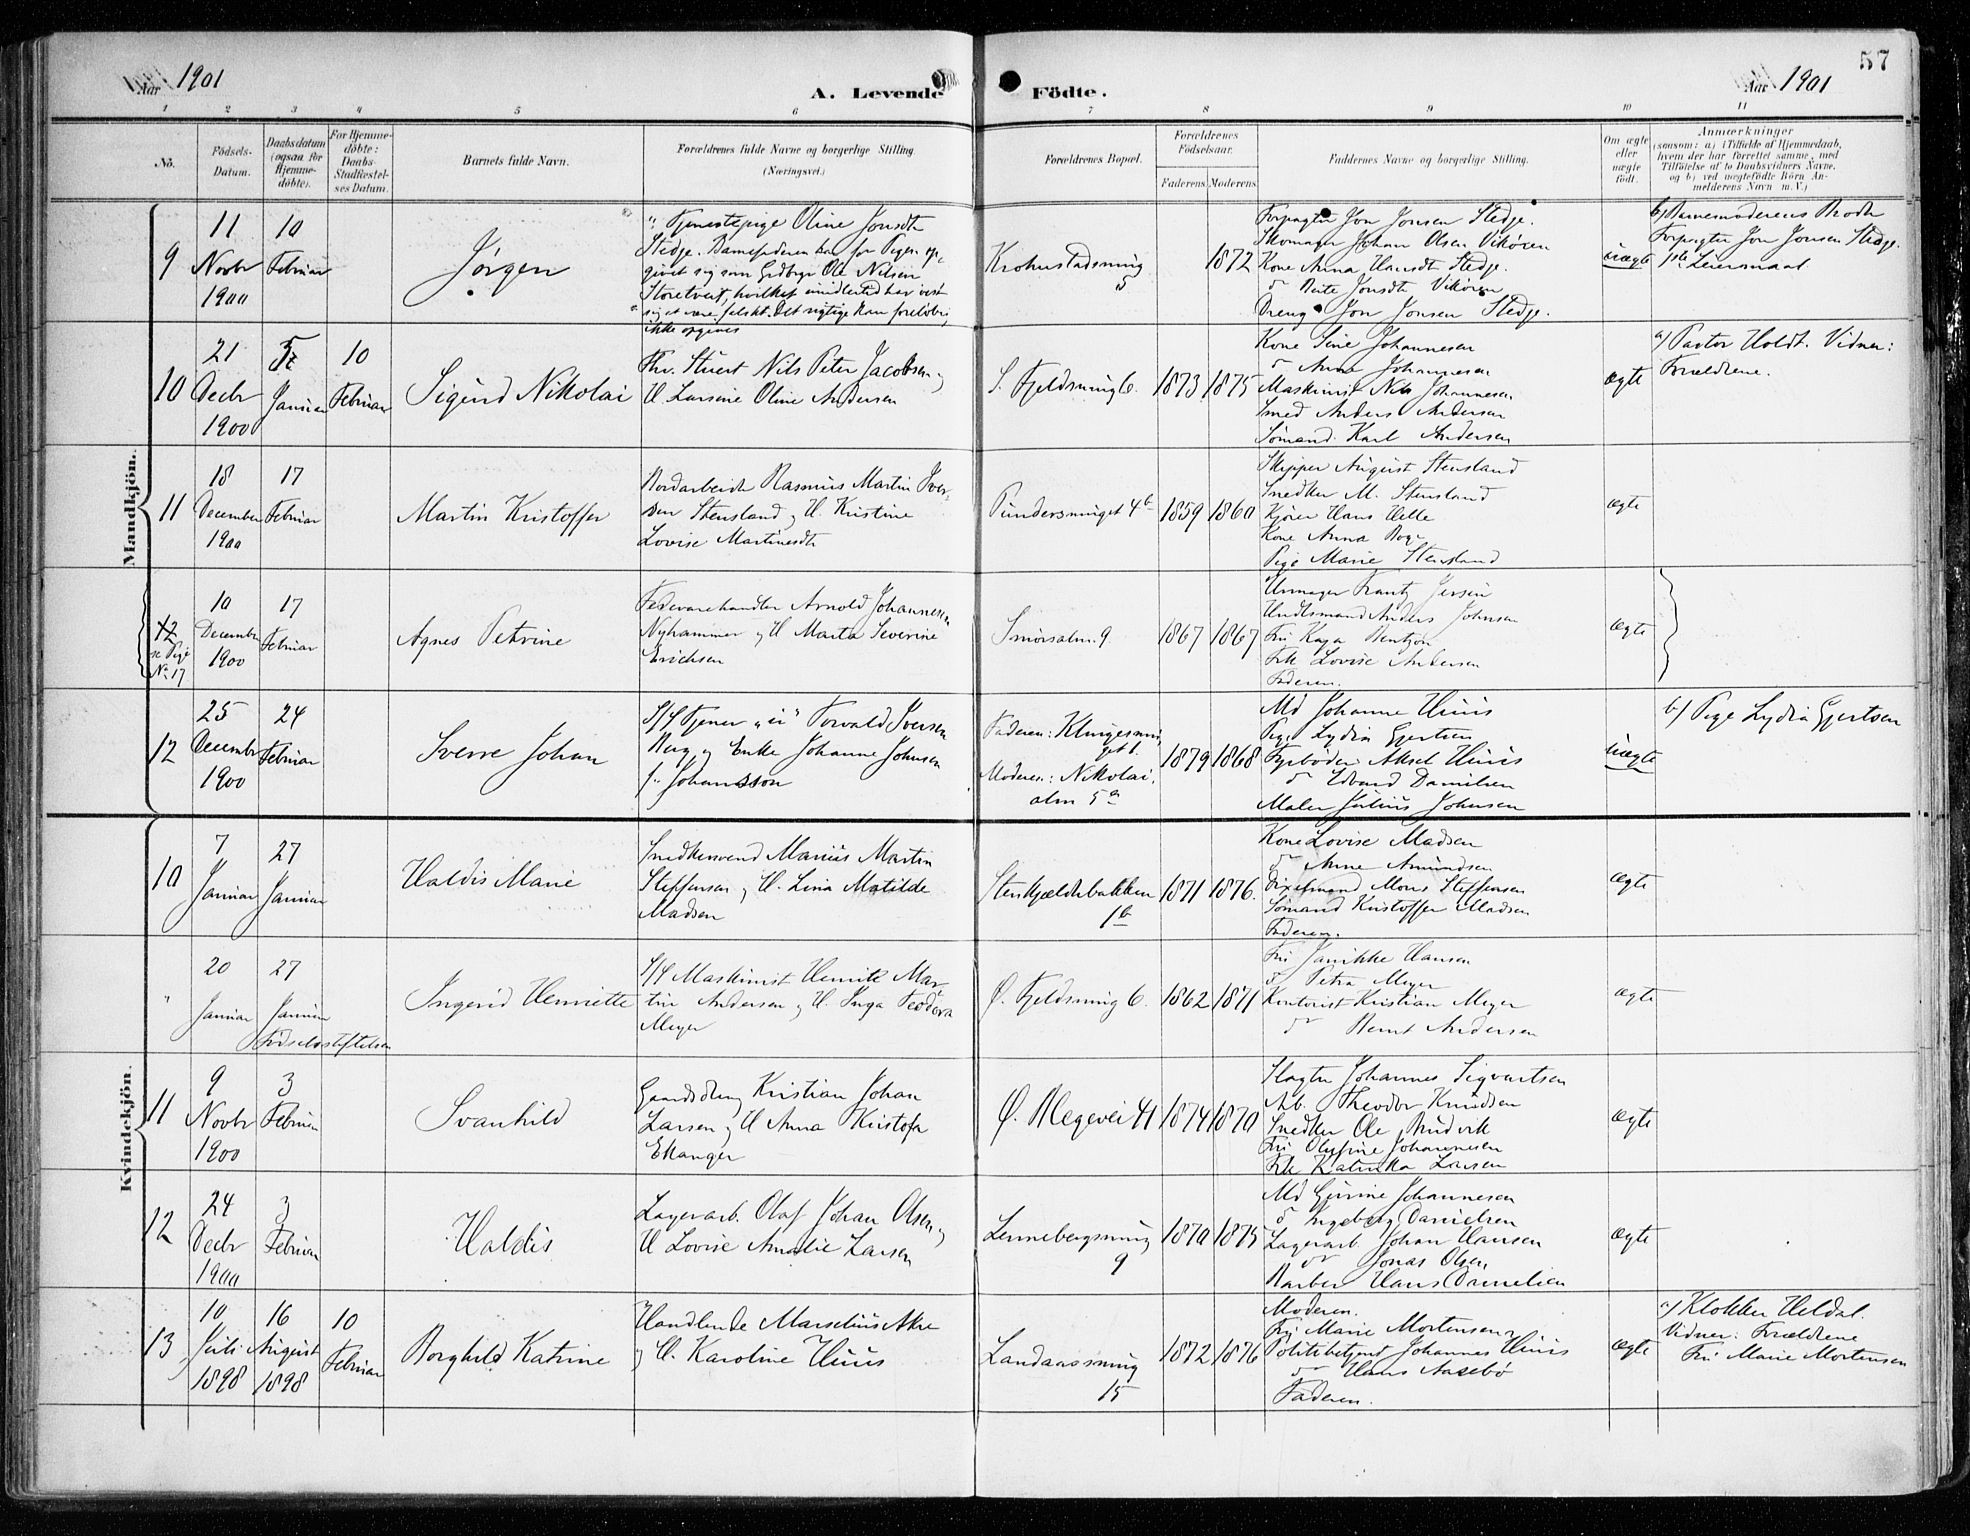 57
Aar 1901
A. Levende Födte.
Aar 1901
1 2 3 4 5 6 7 8 9 10 11
No.
Födsels-Datum.
Daabsdatum (ogsaa for Hjemme-döbte).
For Hjemme-döbte: Daabs-Stadfæstel-ses Datum.
Barnets fulde Navn.
Forældrenes fulde Navne og borgerlige Stilling. (Næringsvei.)
Forældrenes Bopæl.
Forældrenes Födselsaar.
Faderens. Moderens.
Faddernes Navne og borgerlige Stilling.
Om ægte eller uægte födt.
Anmærkninger
(saasom: a) i Tilfælde af Hjemmedaab,
hvem der har forrettet samme, med
Tilföielse af to Daabsvidners Navne,
og b) ved uægtefödte Börn An-
melderens Navn m. V.)
Mandkjön.
9
11 Novbr 1900
10 Februar
Jørgen
Tjenestepige Oline Jonsdtr
Stedje. Barnefaderen har for Pigen op-
givet sig som Grdbrgr Ole Nilsen
Storetveit, hvilket imidlertid har vist
sig at være falskt. Det rigtige kan foreløbig
ikke opgives
Krohnstadsmug
5
1872
Forpagter Jon Jonsen Stedje.
Skomager Johan Olsen Vikøren
Kone Anna Hansdtr Stedje.
do Brite Jonsdtr Vikøren
Dreng Jon Jonsen Stedje.
uægte
b) Barnemoderens Broder
Forpagter Jon Jonsen Stedje.
1ste Leiermaal.
10
21 Decbr 1900
Januar
10 Februar
Sigurd Nikolai
Fhv. Stuert Nils Peter Jacobsen og
H. Larsine Oline Andersen
S. Fjeldsmug 6.
1873
1875
Kone Sine Johannesen
do Anna Johannesen
Maskinist Nils Johannesen
Smed Anders Andersen
Sømand Karl Andersen
ægte
a) Pastor Holdt. Vidner:
Forældrene.
11
18 December 1900
17 Februar
Martin Kristoffer
Bordarbeider Rasmus Martin Iver-
sen Stensland og H. Kristine
Lovise Martinesdtr
Pundersmuget 4b
1859
1860
Skipper August Stensland
Snedker M. Stensland
Kjører Hans Helle
Kone Anna Boge
Pige Marie Stensland
ægte
12
se Pige
No. 17
10 December 1900
17 Februar
Agnes Petrine
Fedevarehandler Arnold Johannesen
Nyhammer og H. Marta Severine
Erichsen
Smørsalm. 9
1867
1867
Urmager Frantz Jersin
Handlsmand Anders Johnsen
Fru Kaja Bentzon
Frk Lovise Andersen
Faderen.
ægte
12
25 December 1900
24 Februar
Sverre Johan
S/S Tjener "ui" Torvald Iversen
Berg og Enke Johanne Johnsen
f. Johansson
Faderen: Klingesmu-
get 1.
Moderen: Nikolai.
alm 5a
1879
1868
Md Johanne Huus
Pige Lydia Gjertsen
Fyrbøder Aksel Huus
do Edvard Danielsen
Maler Julius Johnsen
uægte
b) Pige Lydia Gjertsen
Kvindekjön.
10
7 Januar
27 Januar
Haldis Marie
Snedkersvend Marius Martin
Steffensen og H. Lina Matilde
Madsen
Stenkjælderbakken
1b
1871
1876.
Kone Lovise Madsen
do Anne Amundsen
Bixelmand Mons Steffensen
Sømand Kristoffer Madsen
Faderen.
ægte
"
20 Januar
27 Januar
Fødselsstiftelsen
Ingerid Henriette
S/S Maskinist Henrik Mar-
tin Andersen og H. Inga Teodora
Meyer
Ø. Fjeldsmug 6.
1862
1871
Fru Janikke Hansen
do Petra Meyer
Kontorist Kristian Meyer
do Bernt Andersen
ægte
11
9 Novbr 1900
3 Februar
Svanhild
Gaardsdreng Kristian Johan
Larsen og H Anna Kristofa
Ekanger
Ø. Blegevei 41
1874
1870
Slagter Johannes Sigvartsen
Arb. Theodor Knudsen
Snedker Ole Rudvik
Fru Olufine Johannesen
Frk Katinka Larsen
ægte
12
24 Decbr 1900
3 Februar
Haldis
Lagerarb. Olaf Johan Olsen og
H Lovise Amalie Larsen
Lennebergsmug
9
1870
1875
Md Gurine Johannesen
do Ingeborg Danielsen
Lagerarb. Johan Hansen
do Jonas Olsen
Barber Hans Danielsen
ægte
13
10 Juli 1898
16 August 1898
10 Februar
Borghild Katrine
Handlende Marselius Akre
og H. Karoline Huus
Landaassmug
15
1872
1876
Moderen.
Fru Marie Mortensen
Politibetjent Johannes Huus
do Hans Aasebø
Faderen.
ægte
a) Klokker Heldal.
Vidner: Forældrene
Fru Marie Mortensen